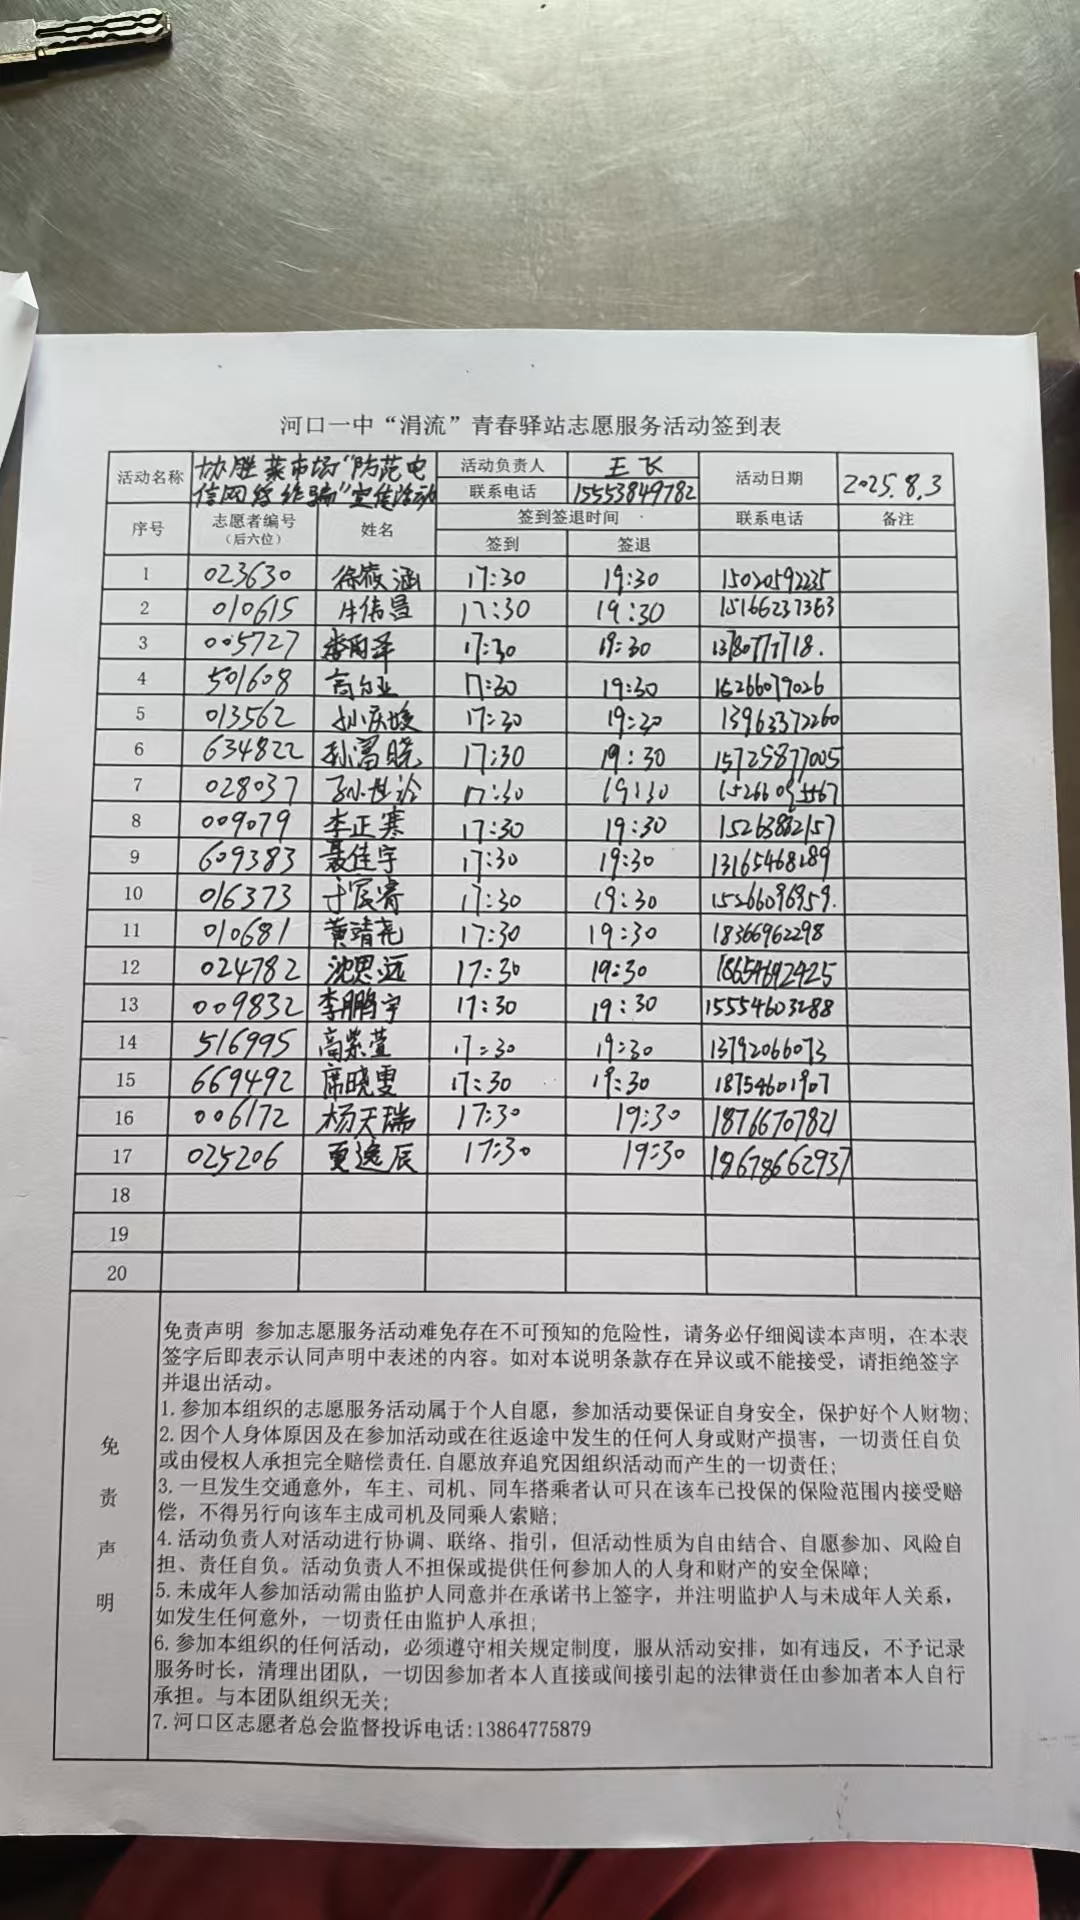 河口一中“涓流”青春驿站志愿服务活动签到表
活动名称 协胜菜市场“防范电信网络诈骗”宣传活动 活动负责人 王飞 活动日期 2025.8.3
联系电话 15553849782
序号 志愿者编号（后六位） 姓名 签到签退时间 联系电话 备注
签到 签退
1 023630 徐薇涵 17:30 19:30 15020592235
2 010615 牛伟昌 17:30 19:30 15166237363
3 005727 李雨泽 17:30 19:30 1378077718.
4 501608 高尔亚 17:30 19:30 15266079026
5 013562 17:30 19:30 13963372260
6 634822 孙富晓 17:30 19:30 15725877005
7 028037 17:30 19:30
8 009079 李正寒 17:30 19:30 15263882157
9 609383 聂佳宇 17:30 19:30 13165468189
10 016373 于宸睿 17:30 19:30 15266096959.
11 010681 黄靖尧 17:30 19:30 18366962298
12 024782 沈思远 17:30 19:30 18654692425
13 009832 李鹏宇 17:30 19:30 15554603288
14 516995 高紫萱 17:30 19:30 13792066073
15 669492 席晓雯 17:30 19:30 18754601907
16 006172 杨天瑞 17:30 19:30 18766707821
17 025206 逸辰 17:30 19:30 18678662937
18
19
20
免责声明
免责声明 参加志愿服务活动难免存在不可预知的危险性，请务必仔细阅读本声明，在本表
签字后即表示认同声明中表述的内容。如对本说明条款存在异议或不能接受，请拒绝签字
并退出活动。
1.参加本组织的志愿服务活动属于个人自愿，参加活动要保证自身安全，保护好个人财物；
2.因个人身体原因及在参加活动或在往返途中发生的任何人身或财产损害，一切责任自负
或由侵权人承担完全赔偿责任.自愿放弃追究因组织活动而产生的一切责任；
3.一旦发生交通意外，车主、司机、同车搭乘者认可只在该车已投保的保险范围内接受赔
偿，不得另行向该车主成司机及同乘人索赔；
4.活动负责人对活动进行协调、联络、指引，但活动性质为自由结合、自愿参加、风险自
担、责任自负。活动负责人不担保或提供任何参加人的人身和财产的安全保障；
5.未成年人参加活动需由监护人同意并在承诺书上签字，并注明监护人与未成年人关系，
如发生任何意外，一切责任由监护人承担；
6.参加本组织的任何活动，必须遵守相关规定制度，服从活动安排，如有违反，不予记录
服务时长，清理出团队，一切因参加者本人直接或间接引起的法律责任由参加者本人自行
承担。与本团队组织无关；
7.河口区志愿者总会监督投诉电话:13864775879